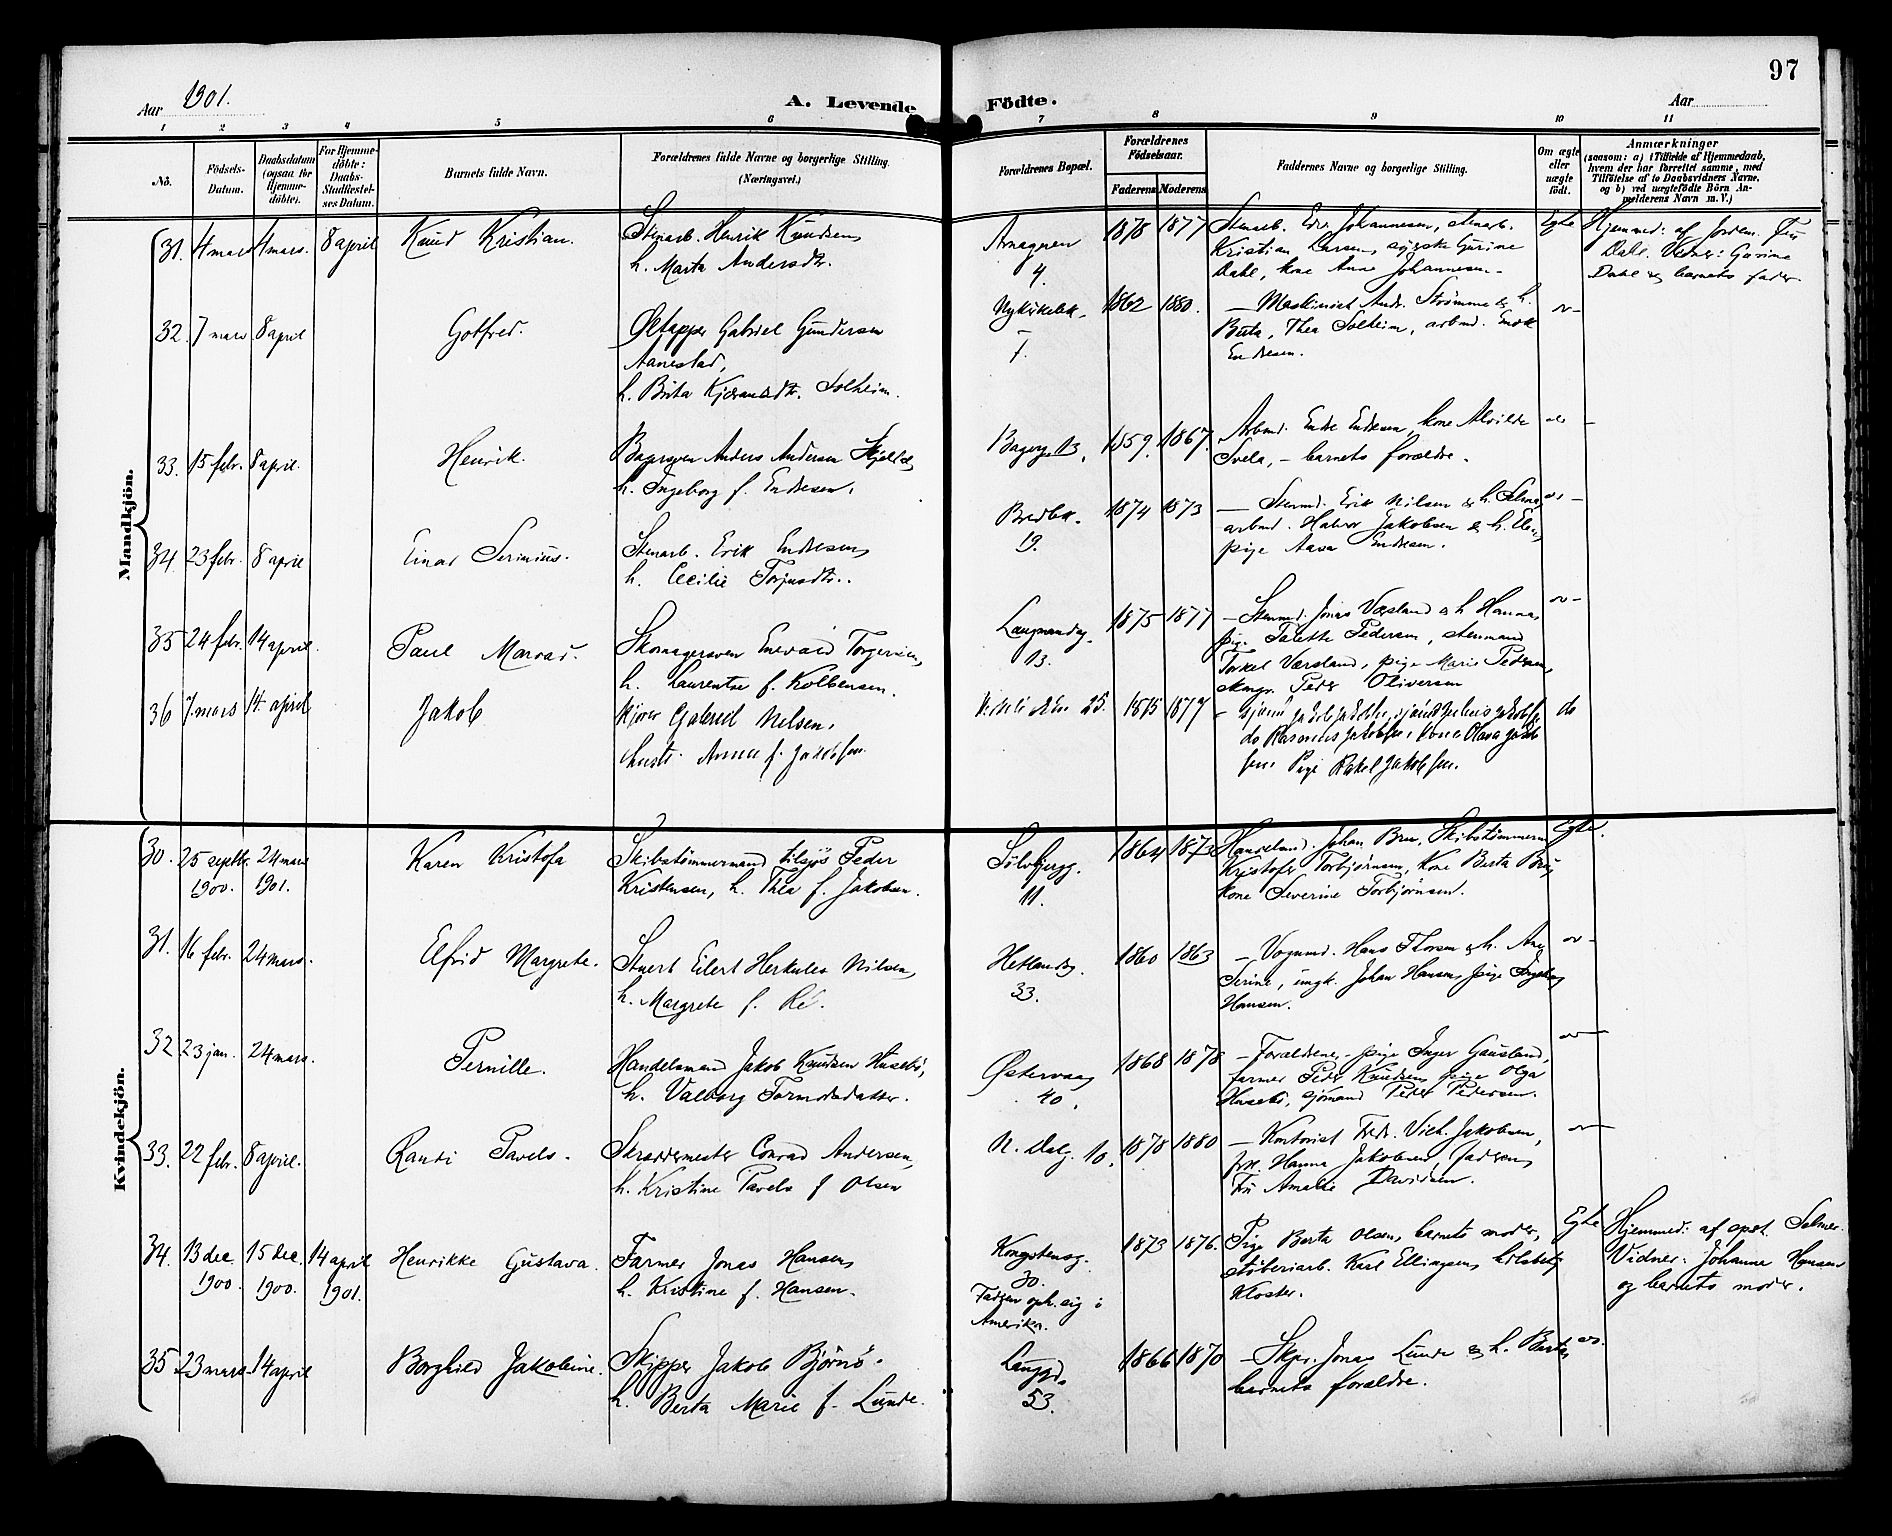 97
Aar 1901. A. Levende Födte. Aar
1 2 3 4 5 6 7 8 9 10 11
Nö.
Födsels-Datum.
Daabsdatum (ogsaa for Hjemme-döbte).
For Hjemme-döbte: Daabs-Stadfæstel-ses Datum.
Barnets fulde Navn.
Forældrenes fulde Navne og borgerlige Stilling. (Næringsvei.)
Forældrenes Bopæl.
Forældrenes Födselsaar.
Faderens Moderens
Faddernes Navne og borgerlige Stilling.
Om ægte eller uægte födt.
Anmærkninger
(saasom: a) i Tilfælde af Hjemmedaab, hvem der har forrettet samme, med Tilföielse af to Daabsvidners Navne, og b) ved uægtefödte Börn Anmelderens Navn m. V.)
Mandkjön.
31. 4 mars 4 mars. 8 april Knud Kristian. Stenarb. Henrik Knudsen,
h. Marta Andersdtr.
4. 1878 1877 Stenarb. Edv. Johannesen, stenarb.
Kristian Larsen, Gurine
Dahl, kone Anne Johannesen.
Egte Hjemmed: af Jordem. Fru
Dahl. Vidner: Gurine
Dahl & barnets fader.
32. 7 mars 8 april Gotfred. Øltapper Gabriel Gundersen
Aanestad,
h. Brita Solheim.
7. 1862 1880. – Maskinist Andr. Strømme & h.
Berta, Thea Solheim, arbmd. Enok
Endresen.
33. 15 febr. 8 april. Henrik. Bagersven Anders Andersen
h. Ingeborg f. Endresen.
Bagerg. 13. 1859. 1867. Arbmd. Endre Endresen, kone Alvilde
Svela, – barnets forældre.
34. 23 febr. 8 april Einar Serinius. Stenarb. Erik Endresen,
h. Cecilie Torjusdtr.
Bredbk. 19. 1874 1873 – Stenmd. Erik Nilsen & h. Selma,
arbmd. Halvor Jakobsen & h.
pige Aasa Endresen.
35 24 febr. 14 april. Paul Skomagersven Enevald Torgersen,
h. Laurentse f. Kolbensen.
13. 1875 1877 – Stenmd. Jonas Værsland & h Hanna,
pige Talette Pedersen, stenmand
Torkel Værsland, pige Marie Pedersen,
skmgr. Peder Oliversen
36 7. mars 14. april Jakob Gabriel Nilsen,
f. Jakobsen
25. 1875 1877
do Rasmus Jakobsen, Kone Olava
Pige Rakel Jakobsen.
do
Kvindekjön.
30. 25 septbr. 1900. 24 mars 1901. Karen Kristofa Skibstømmermand tilsjøs Peder
Kristensen, h. Thea f. Jakobsen.
Sølvbergg. 11. 1864 1873 Handelsmd. Johan Bru, Skibstømmerm
Kristofer Torbjørnsen, Kone Berta Bru,
kone Severine Torbjørnsen.
Egte.
31. 16 febr. 24 mars. Elfrid Margrete. Stuert Eilert Herkules Nilsen,
h. Margrete f. Re.
Hetlandsg. 33. 1860 1863 – Vognmd. Hans Thorsen & h. Ane
Serine, ungk. Johan Hansen, pige Ingeborg
Hansen.
32 23 jan. 24 mars. Pernille. Handelsmand Jakob Knudsen Husebø,
h. Valborg Tormodsdatter.
Østervaag 40. 1868 1878 – Forældrene, – pige Inger Gausland,
farmer Peder Knudsen, pige Olga
Husebø, sjømand Peder Pedersen.
33. 22 febr. 8 april. Randi Pavels. Skræddermester Conrad Andersen,
h. Kristine Pavels f Olsen
N. Dalg. 10. 1878 1880 – Kontorist Fredr. Vilh. Jakobsen,
frk. Hanna Jakobsen, faderen,
Fru Amalie Davidsen.
34. 13 dec. 1900. 15 dec. 1900. 14 april 1901. Henrikke Gustava. Farmer Jonas Hansen,
h. Kristine f. Hansen.
Kongstensg. 30.
Faderen oph. sig i
Amerika.
1873 1876. Pige Berta Olsen, barnets moder,
støberiarb. Karl Ellingsen,
Kloster.
Egte Hjemmed: af Selmer.
Vidner: Johanne Hansen
og barnets moder.
35 23 mars 14 april Borghild Jakobine. Skipper Jakob Bjørnø.
h. Berta Marie f. Lunde.
Langgd. 53. 1866 1870 – Skpr. Jonas Lunde & h. Berta,
barnets forældre.